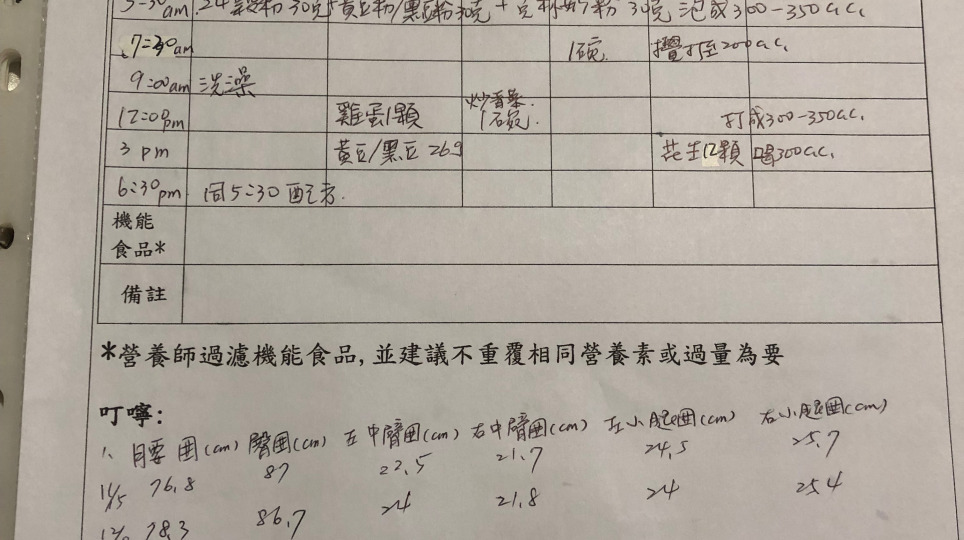 5:30am 24穀粉30克+黃豆粉/黑豆粉30克+克杯奶粉30克 泡成300-350c.c.
7:30am 1碗 攪打至200c.c.
9:00am 洗澡
12:00pm 雞蛋1顆 炒香菜1碗. 打成300-350c.c.
3 pm 黃豆/黑豆26g 花生12顆 喝300c.c.
6:30pm 同5:30配方.
機能
食品*
備註
*營養師過濾機能食品,並建議不重覆相同營養素或過量為要
叮嚀:
1. 腰圍(cm) 臀圍(cm) 左中臂圍(cm) 右中臂圍(cm) 左小腿圍(cm) 右小腿圍(cm)
11/5 76.8 87 22.5 21.7 24.5 25.7
78.3 86.7 24 21.8 24 25.4